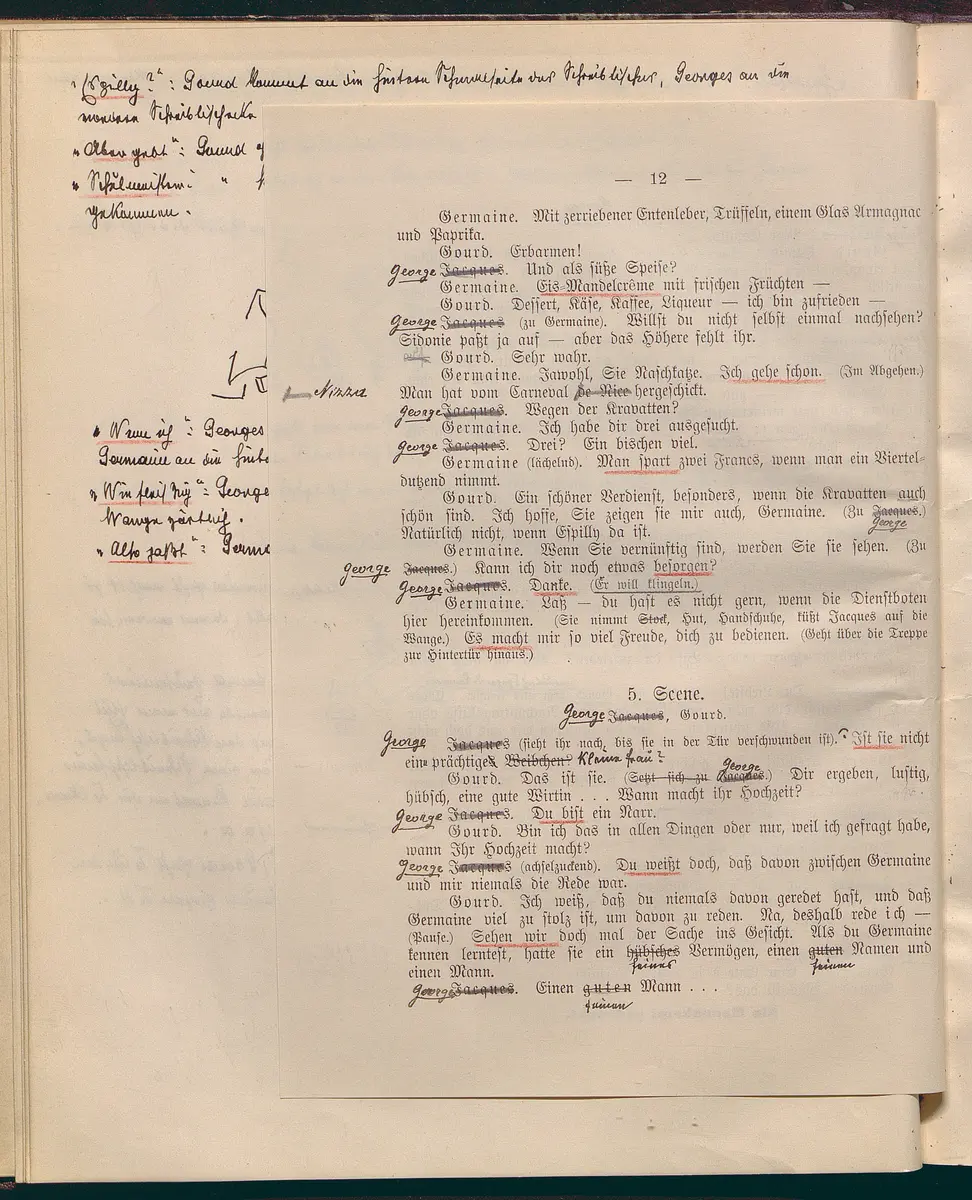 "Espilly?": Gourd kommt an die hintere Schmalseite des Schreibtisches, Georges an die
vordere Schreibtischecke
"Aber geht": Gourd
"Schulmeister:"
gekommen.
"Wenn ich": Georges
Germaine an die hinte
"Wie fleißig": George
Wange zärtlich.
"Also paßt": Germa
— 12 —
Germaine. Mit zerriebener Entenleber, Trüffeln, einem Glas Armagnac
und Paprika.
Gourd. Erbarmen!
George Jacques. Und als süße Speise?
Germaine. Eis-Mandelcrême mit frischen Früchten —
Gourd. Dessert, Käse, Kaffee, Liqueur — ich bin zufrieden —
George Jacques (zu Germaine). Willst du nicht selbst einmal nachsehen?
Sidonie paßt ja auf — aber das Höhere fehlt ihr.
Gourd. Sehr wahr.
Germaine. Jawohl, Sie Naschkatze. Ich gehe schon. (Im Abgehen.)
Nizza Man hat vom Carneval de Nice hergeschickt.
George Jacques. Wegen der Kravatten?
Germaine. Ich habe dir drei ausgesucht.
George Jacques. Drei? Ein bischen viel.
Germaine (lächelnd). Man spart zwei Francs, wenn man ein Viertel-
dutzend nimmt.
Gourd. Ein schöner Verdienst, besonders, wenn die Kravatten auch
schön sind. Ich hoffe, Sie zeigen sie mir auch, Germaine. (Zu Jacques.)
George
Natürlich nicht, wenn Espilly da ist.
Germaine. Wenn Sie vernünftig sind, werden Sie sie sehen. (Zu
George Jacques.) Kann ich dir noch etwas besorgen?
George Jacques. Danke. (Er will klingeln.)
Germaine. Laß — du hast es nicht gern, wenn die Dienstboten
hier hereinkommen. (Sie nimmt Stock, Hut, Handschuhe, küßt Jacques auf die
Wange.) Es macht mir so viel Freude, dich zu bedienen. (Geht über die Treppe
zur Hintertür hinaus.)
5. Scene.
George Jacques, Gourd.
George Jacques (sieht ihr nach, bis sie in der Tür verschwunden ist). Ist sie nicht
ein prächtiges Weibchen? kleine Frau?
George
Gourd. Das ist sie. (Setzt sich zu Jacques.) Dir ergeben, lustig,
hübsch, eine gute Wirtin . . . Wann macht ihr Hochzeit?
George Jacques. Du bist ein Narr.
Gourd. Bin ich das in allen Dingen oder nur, weil ich gefragt habe,
wann Ihr Hochzeit macht?
George Jacques (achselzuckend). Du weißt doch, daß davon zwischen Germaine
und mir niemals die Rede war.
Gourd. Ich weiß, daß du niemals davon geredet hast, und daß
Germaine viel zu stolz ist, um davon zu reden. Na, deshalb rede ich —
(Pause.) Sehen wir doch mal der Sache ins Gesicht. Als du Germaine
kennen lerntest, hatte sie ein hübsches Vermögen, einen guten Namen und
feines feinen
einen Mann.
George Jacques. Einen guten Mann . . .
feinen